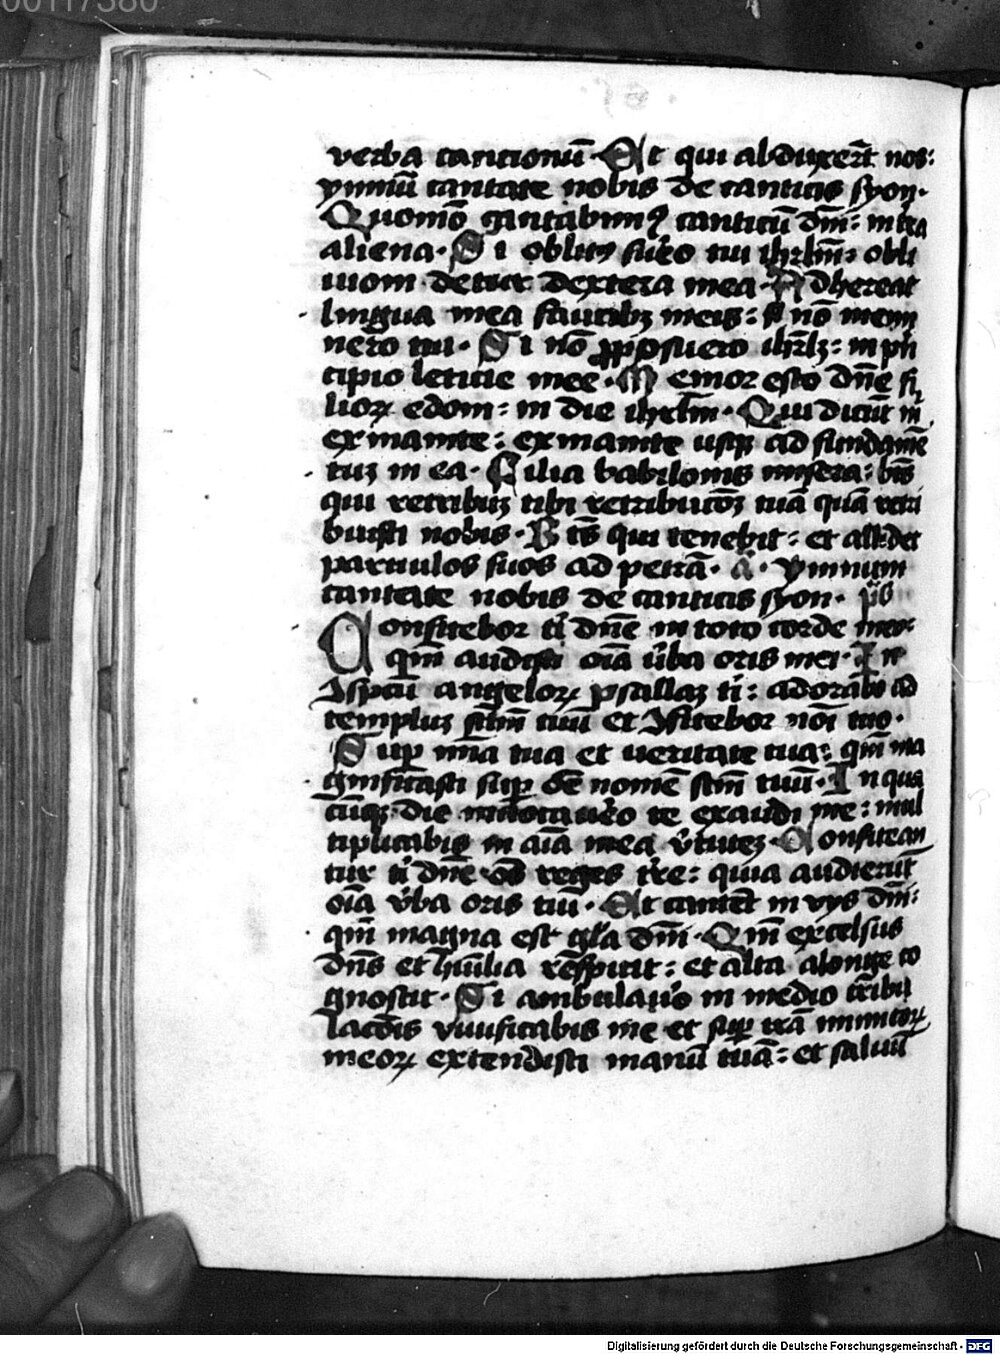 00117380
verba cantionū · Et qui abduxer̄t nos:
ymnū cantate nobis de canticis syon ·
Quomō cantabimꝰ canticū dn̄i: in tr̄a
aliena · Si oblitꝰ fuẻo tui ihrlm̄: obli
uioni detur dextera mea · Adhereat
lingua mea faucibꝫ meis: si nō memi
nero tui · Si nō ꝓposuero ihrlꝫ: in pͥn
cipio leticie mee · Memor esto dn̄e fi
lioꝝ edom: in die ihrlm̄ · Qui dicūt in
exinanite: exinanite usqꝫ ad fundamē
tuꝫ in ea · Filia babilonis misera: bt̄s
qui retribuꝫ tibi retribucōꝫ tuā quā retri
buisti nobis · Bt̄s qui tenebit: et allidet
paruulos suos ad petrā · a͞ · Ymnum
cantate nobis de canticis syon · ps̄
Confitebor ti dn̄e in toto corde meo:
qm̄ audisti oīa v̓ba oris mei · In
ꝯspc̄u angeloꝝ psallaꝫ ti: adorabo ad
templuꝫ sc̄m tuū et ꝯfitebor noī tuo ·
Sup̱ mīa tua et ueritate tua: qm̄ ma
gnificasti sup̱ oē nomē sc̄m tuū · In qua
cūqꝫ die inuocauẻo te exaudi me: mul
tiplicabis in aīa mea v̓tuteꝫ · Confitean
tur ti dn̄e oēs reges tr̄e: quia audierūt
oīa v̓ba oris tui · Et cantēt in vijs dn̄i:
qm̄ magna est gl̄a dn̄i · Qm̄ excelsus
dn̄s et hūilia respicit: et alta alonge co
gnoscit · Si ambulau̓o in medio tribu
lacōis viuificabis me et sup̱ irā inimicoꝝ
meoꝝ extendisti manū tuā: et saluū
Digitalisierung gefördert durch die Deutsche Forschungsgemeinschaft - DFG